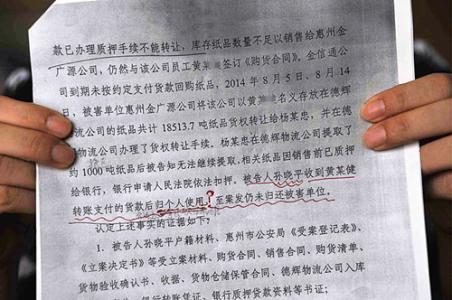 款已办理质押手续不能转让，库存纸品数量不足以销售给惠州金
广源公司，仍然与该公司员工黄某 签订《购货合同》。金信通公
司到期未按约定支付货款回购纸品，2014 年 8 月 5 日、8 月 14
日，被害单位惠州金广源公司将该公司以黄 名义存放在德辉
物流公司的纸品共计 18513.7 吨纸品货权转让给杨某忠，并在德
辉物流公司办理了货权转手续。杨某忠在德辉物流公司提取了
约 1000 吨纸品后被告知无法继续提取，相关纸品因销售前已质押
给银行，银行申请人民法院依法扣押。被告人孙晓平收到黄某健
转账支付的货款后归个人使用，至案发仍未归还被害单位。
?
认定上述事实的证据如下：
1、被告人孙晓平户籍材料、惠州市公安局《受案登记表》、
《立案决定书》等受立案材料、购货合同、销售合同、购货清单、
货物验收确认书、收据、货物仓储保管合同、德辉物流公司入库
银行转账凭证、银行质押贷款资料等书证；